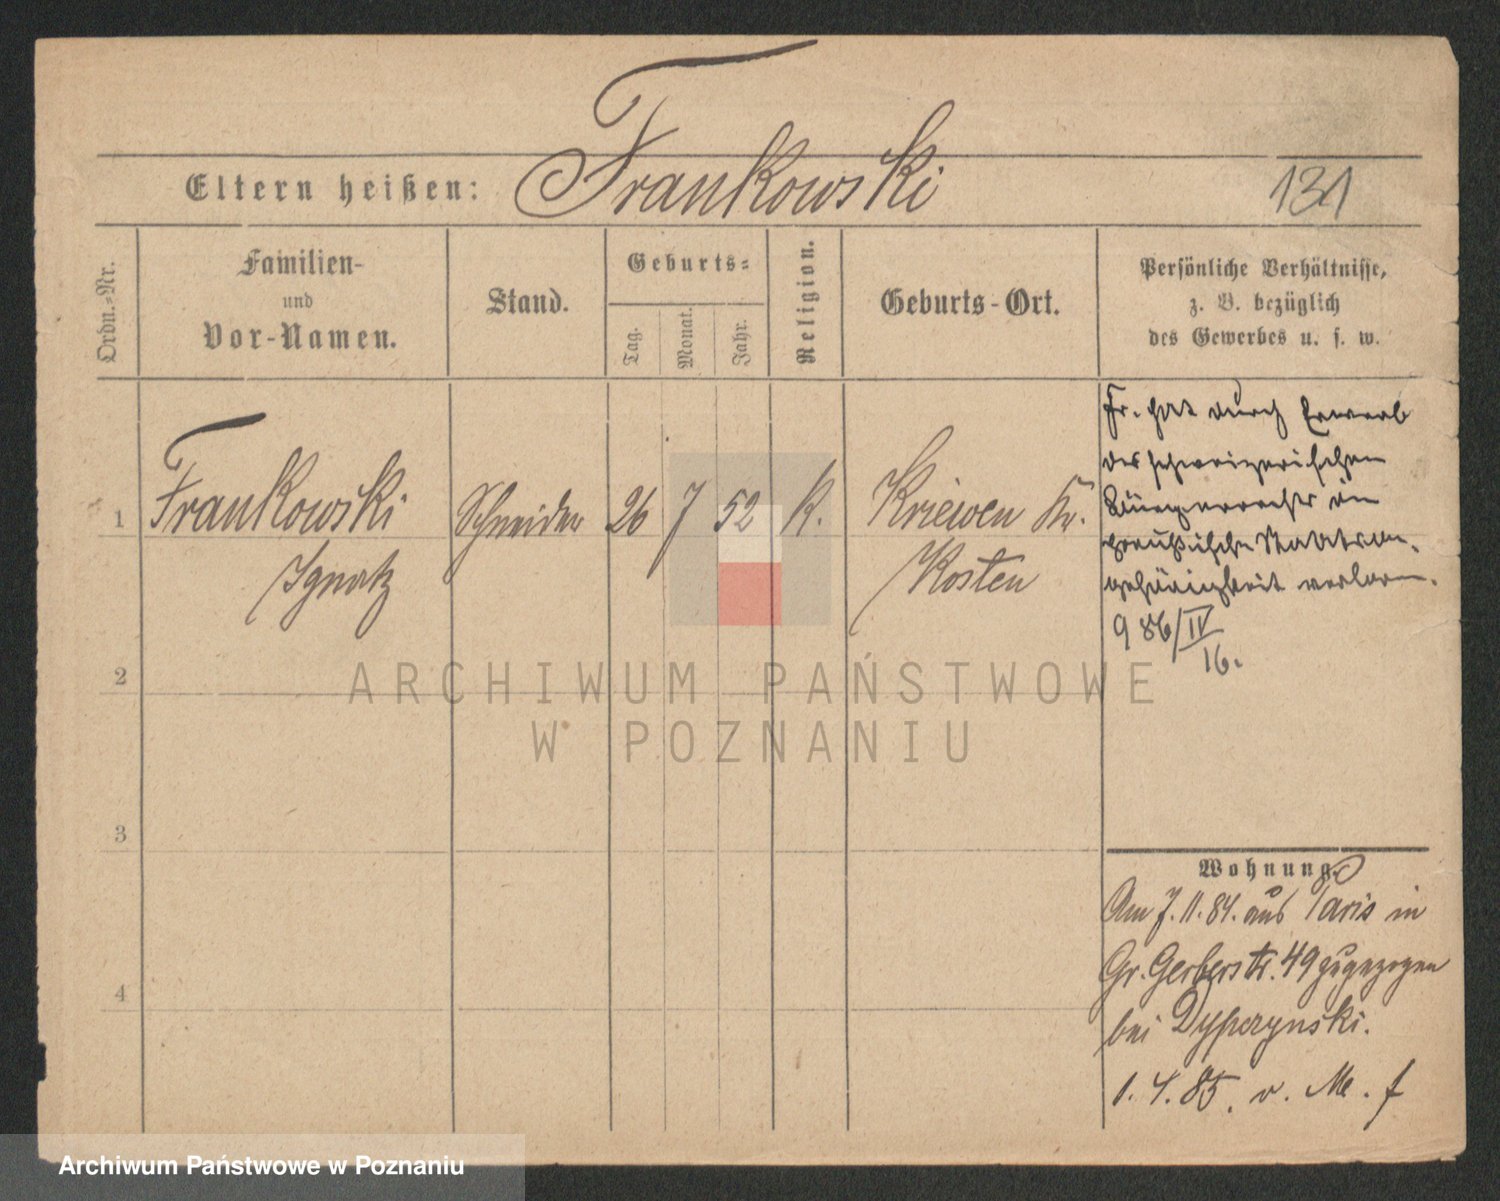 Frankowski
Eltern heißen:
131
Ordn.-Nr.
Familien-
und
Vor-Namen.
Stand.
Geburts-
Tag.
Monat.
Jahr.
Religion.
Geburts-Ort.
Persönliche Verhältnisse,
z. B. bezüglich
des Gewerbes u. s. w.
1
Frankowski
Ignatz
Schneider
26
7
52
K.
Kriewen Kr.
Kosten
Fr. hat durch Erwerb
des schweizerischen
Bürgerrechts die
preußische Staatsan-
gehörigkeit verloren.
986/IV
16.
2
3
4
Wohnung.
Am 7.11.84. aus Paris in
Gr. Gerberstr. 49 zugezogen
bei
1.4.85. v. M. f
ARCHIWUM PAŃSTWOWE
W POZNANIU
Archiwum Państwowe w Poznaniu